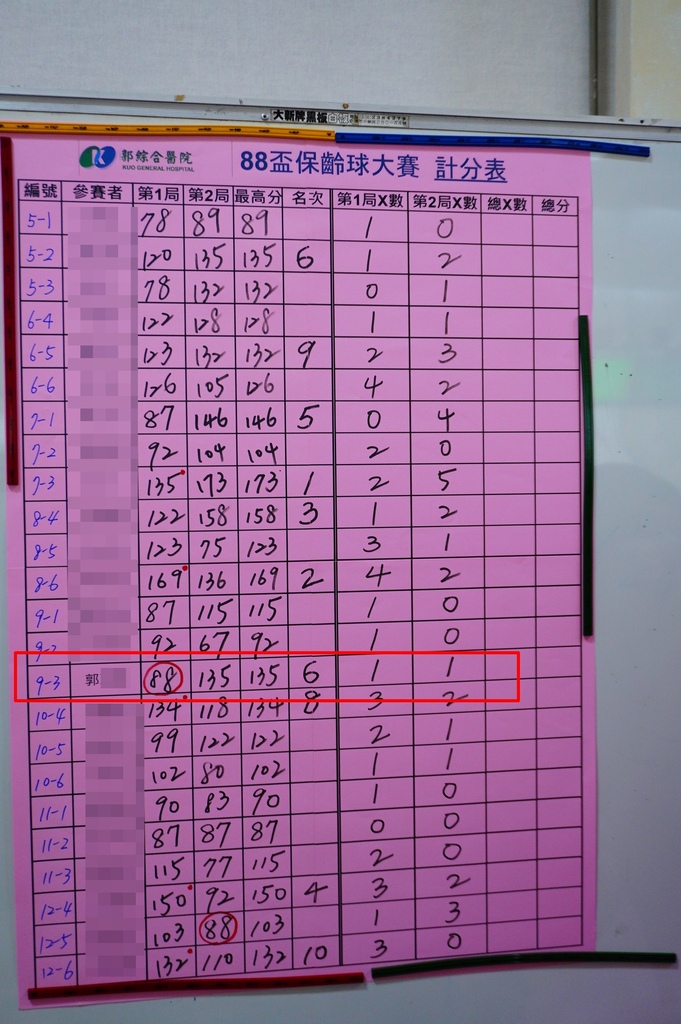 大新牌黑板
郭綜合醫院
KUO GENERAL HOSPITAL
88盃保齡球大賽 計分表
編號 參賽者 第1局 第2局 最高分 名次 第1局X數 第2局X數 總X數 總分
5-1 78 89 89 1 0
5-2 120 135 135 6 1 2
5-3 78 132 132 0 1
6-4 122 128 128 1 1
6-5 123 132 132 9 2 3
6-6 126 105 126 4 2
7-1 87 146 146 5 0 4
7-2 92 104 104 2 0
7-3 135 173 173 1 2 5
8-4 122 158 158 3 1 2
8-5 123 75 123 3 1
8-6 169 136 169 2 4 2
9-1 87 115 115 1 0
9-2 92 67 92 1 0
9-3 郭 88 135 135 6 1 1
10-4 134 118 134 8 3 2
10-5 99 122 122 2 1
10-6 102 80 102 1 1
11-1 90 83 90 1 0
11-2 87 87 87 0 0
11-3 115 77 115 2 0
12-4 150 92 150 4 3 2
12-5 103 88 103 1 3
12-6 132 110 132 10 3 0